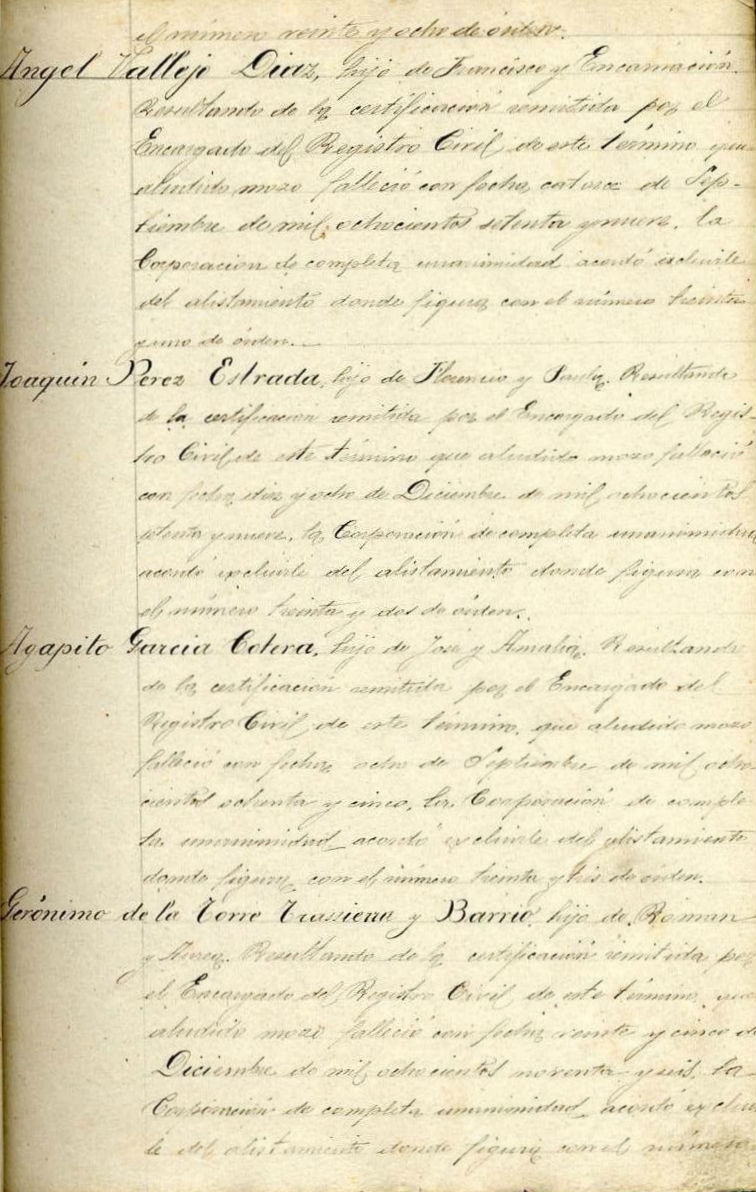 el número veinte y ocho de órden.
Angel Vallejo Diaz, hijo de Francisco y Encarnación.
Resultando de la certificación remitida por el
Encargado del Registro Civil de este término que
aludido mozo falleció con fecha catorce de Sep-
tiembre de mil ochocientos setenta y nueve, la
Corporacion de completa unanimidad acordó excluirle
del alistamiento donde figura con el número treinta
y uno de órden.
Joaquín Perez Estrada, hijo de Florencio y Resultando
de la certificacion remitida por el Encargado del Regis-
tro Civil de este término que aludido mozo falleció
con fecha diez y ocho de Diciembre de mil ochocientos
setenta y nueve, la Corporación de completa unanimidad
acordó excluirle del alistamiento donde figura con
el número treinta y dos de órden.
Agapito Garcia Cotera, hijo de José y Amalia. Resultando
de la certificación remitida por el Encargado del
Registro Civil de este término, que aludido mozo
falleció con fecha ocho de Septiembre de mil ocho-
cientos ochenta y cinco, la Corporación de comple-
ta unanimidad acordó excluirle del alistamiento
donde figura con el número treinta y tres de órden.
Gerónimo de la Torre Trassierra y Barrio, hijo de Roman
y Aurea. Resultando de la certificación remitida por
el Encargado del Registro Civil de este término que
aludido mozo falleció con fecha veinte y cinco de
Diciembre de mil ochocientos noventa y seis, la
Corporación de completa unanimidad acordó excluir-
le del alistamiento donde figura con el número